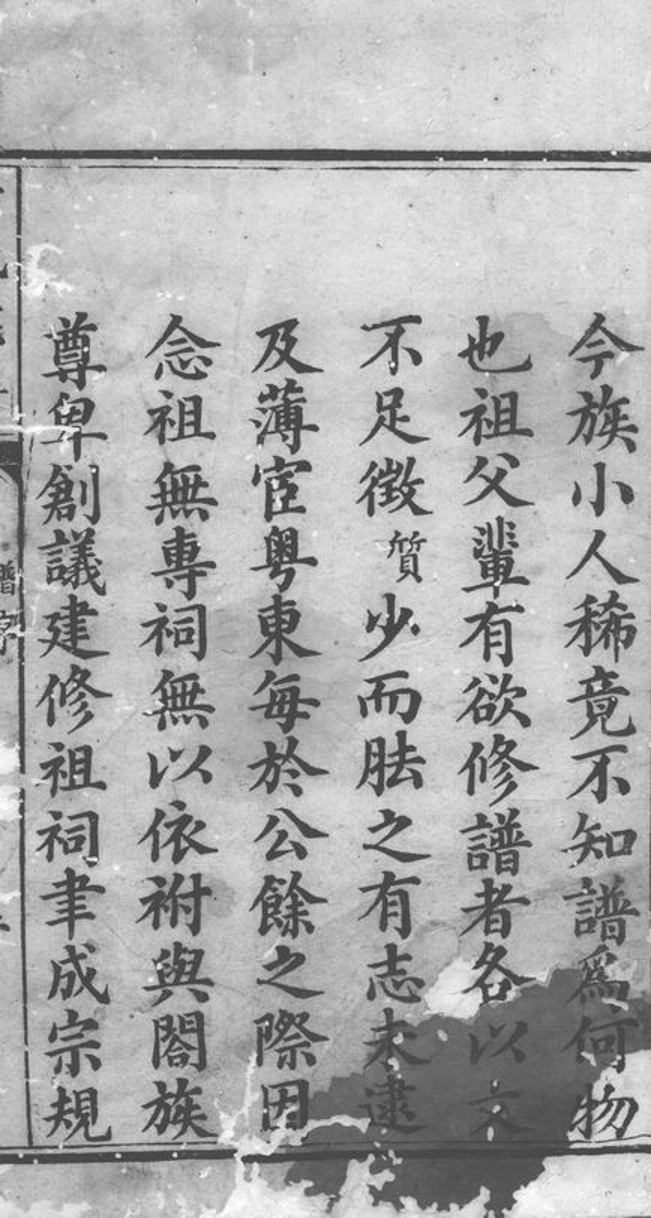 今族小人稀竟不知譜為何物
也祖父輩有欲修譜者各以文
不足徵質少而胠之有志未逮
及薄宦粤東每於公餘之際因
念祖無專祠無以依祔與閤族
尊卑創議建修祖祠聿成宗規
譜序